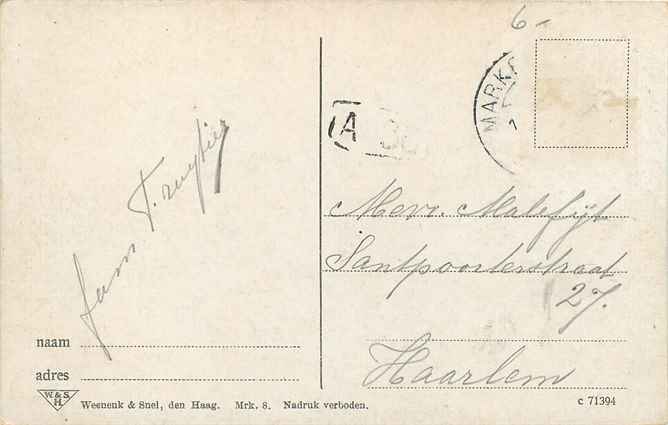 6 -
MARK
A
Mevr. Malefijt
Santpoorterstraat
27.
Haarlem
Fam
naam
adres
W.&S.
H.
Weenenk & Snel, den Haag. Mrk. 8. Nadruk verboden.
c 71394